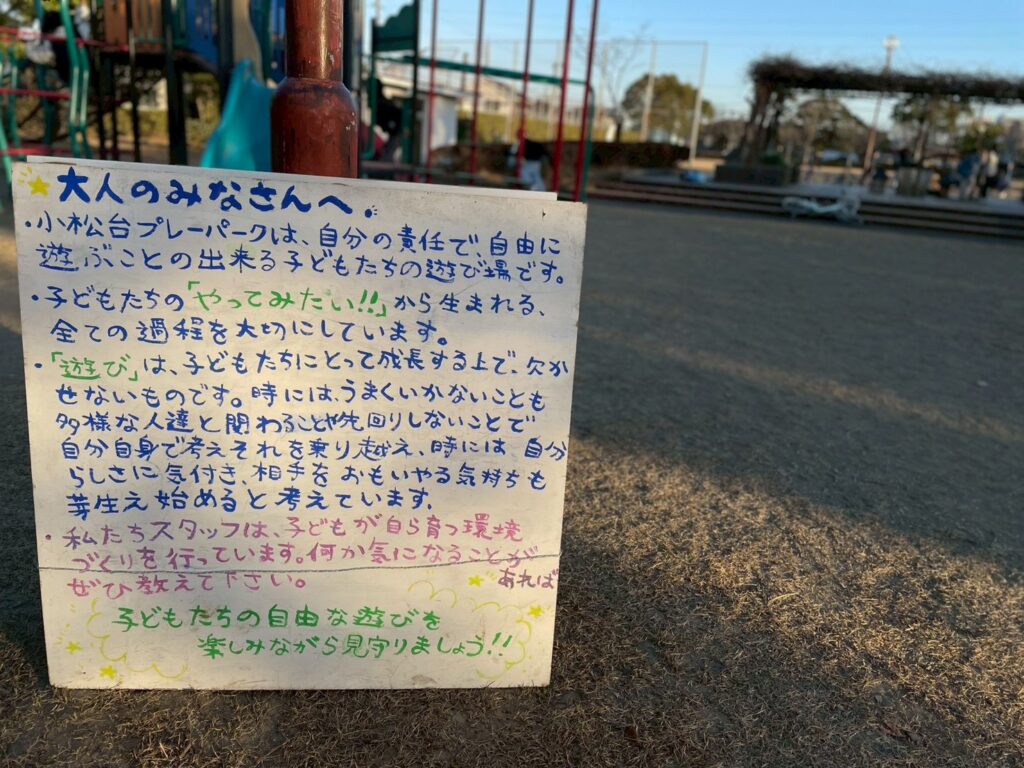 大人のみなさんへ。
・小松台プレーパークは、自分の責任で、自由に
遊ぶことの出来る子どもたちの遊び場です。
・子どもたちの「やってみたい!!」から生まれる、
全ての過程を大切にしています。
・「遊び」は、子どもたちにとって成長する上で、欠か
せないものです。時には、うまくいかないことも
多様な人達と関わることや先回りしないことで
自分自身で考えそれを乗り越え、時には自分
らしさに気付き、相手をおもいやる気持ちも
芽生え始めると考えています。
・私たちスタッフは、子どもが自ら育つ環境
づくりを行っています。何か気になることが
あれば
ぜひ教えて下さい。
子どもたちの自由な遊びを
楽しみながら見守りましょう!!